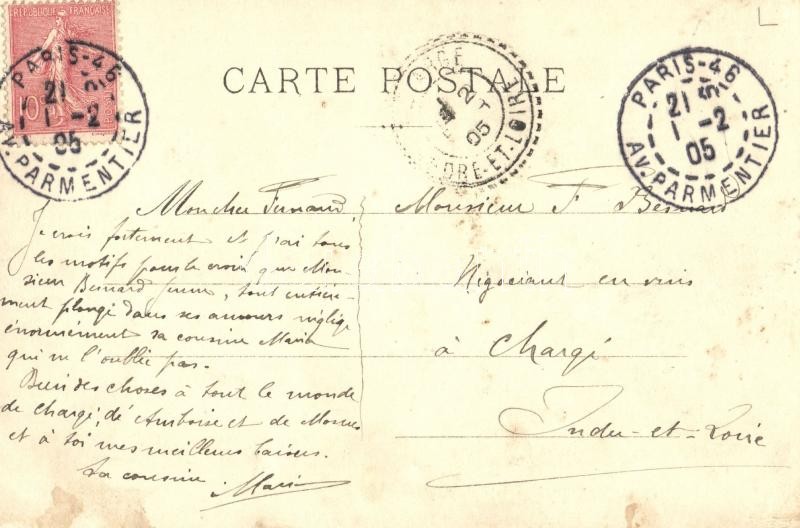 RÉPUBLIQUE FRANÇAISE
10
PARIS-46
21
1 -2
05
AV. PARMENTIER
CARTE POSTALE
2
05
INDRE-ET-LOIRE
PARIS-46
21
1 -2
05
AV. PARMENTIER
L
Mon cher Fernand,
Je crois fortement et j'ai tous
les motifs pour le croire que Mon-
sieur Bernard jeune, tout entière-
ment plongé dans ses amours néglige
énormément sa cousine Maria
qui ne l'oublie pas.
Bien des choses à tout le monde
de Chargé, de Amboise et de Mosnes
et à toi mes meilleurs baisers.
Ta cousine
Maria
Monsieur F. Besnard
Négociant en vins
à Chargé
Indre-et-Loire